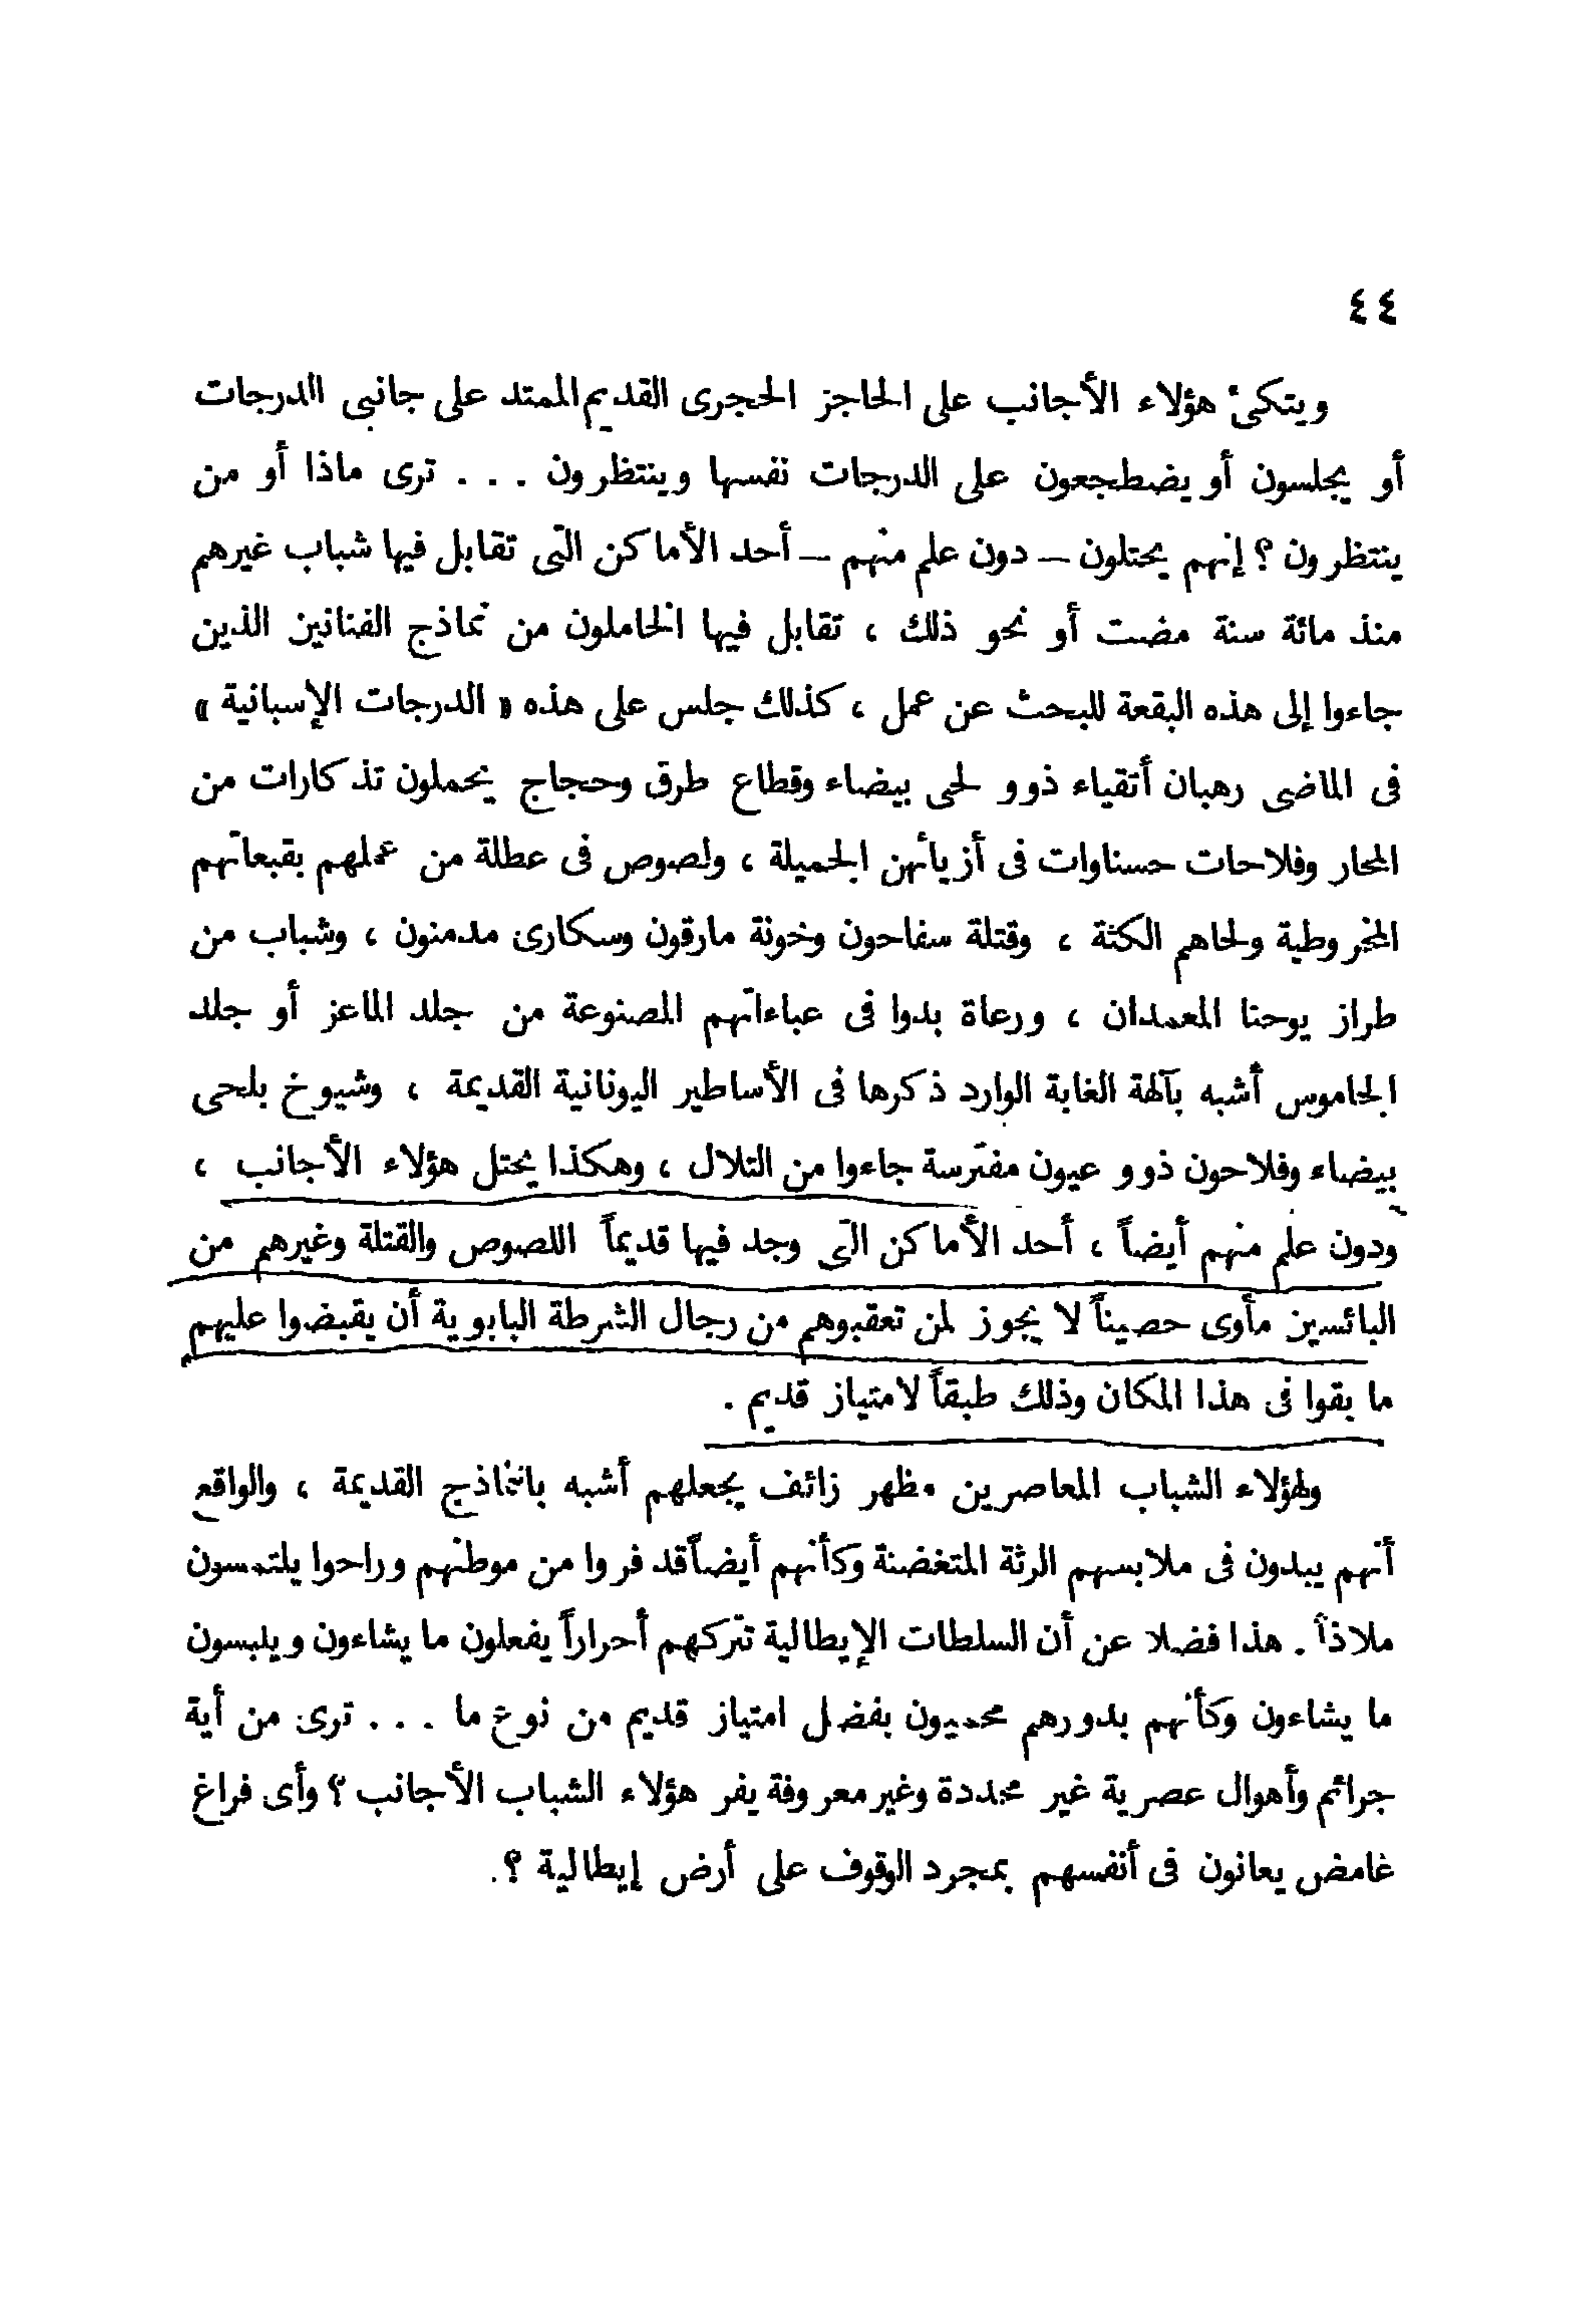 ٤٤
ويتكئ هؤلاء الأجانب على الحاجز الحجرى القديم الممتد على جانبى الدرجات
أو يجلسون أو يضطجعون على الدرجات نفسها وينتظرون . . . ترى ماذا أو من
ينتظرون ؟ إنهم يحتلون – دون علم منهم – أحد الأماكن التى تقابل فيها شباب غيرهم
منذ مائة سنة مضت أو نحو ذلك ، تقابل فيها الخاملون من نماذج الفنانين الذين
جاءوا إلى هذه البقعة للبحث عن عمل ، كذلك جلس على هذه « الدرجات الإسبانية »
فى الماضى رهبان أتقياء ذوو لحى بيضاء وقطاع طرق وحجاج يحملون تذكارات من
المحار وفلاحات حسناوات فى أزيائهن الجميلة ، ولصوص فى عطلة من عملهم بقبعاتهم
المخروطية ولحاهم الكثة ، وقتلة سفاحون وخونة مارقون وسكارى مدمنون ، وشباب من
طراز يوحنا المعمدان ، ورعاة بدوا فى عباءاتهم المصنوعة من جلد الماعز أو جلد
الجاموس أشبه بآلهة الغابة الوارد ذكرها فى الأساطير اليونانية القديمة ، وشيوخ بلحى
بيضاء وفلاحون ذوو عيون مفترسة جاءوا من التلال ، وهكذا يحتل هؤلاء الأجانب ،
ودون علم منهم أيضاً ، أحد الأماكن التى وجد فيها قديماً اللصوص والقتلة وغيرهم من
البائسين مأوى حصيناً لا يجوز لمن تعقبوهم من رجال الشرطة البابوية أن يقبضوا عليهم
ما بقوا فى هذا المكان وذلك طبقاً لامتياز قديم .
ولهؤلاء الشباب المعاصرين مظهر زائف يجعلهم أشبه بالنماذج القديمة ، والواقع
أنهم يبدون فى ملابسهم الرثة المتغضنة وكأنهم أيضاً قد فروا من موطنهم وراحوا يلتمسون
ملاذاً . هذا فضلا عن أن السلطات الإيطالية تتركهم أحراراً يفعلون ما يشاءون ويلبسون
ما يشاءون وكأنهم بدورهم محميون بفضل امتياز قديم من نوع ما . . . ترى من أية
جرائم وأهوال عصرية غير محددة وغير معروفة يفر هؤلاء الشباب الأجانب ؟ وأى فراغ
غامض يعانون فى أنفسهم بمجرد الوقوف على أرض إيطالية ؟.